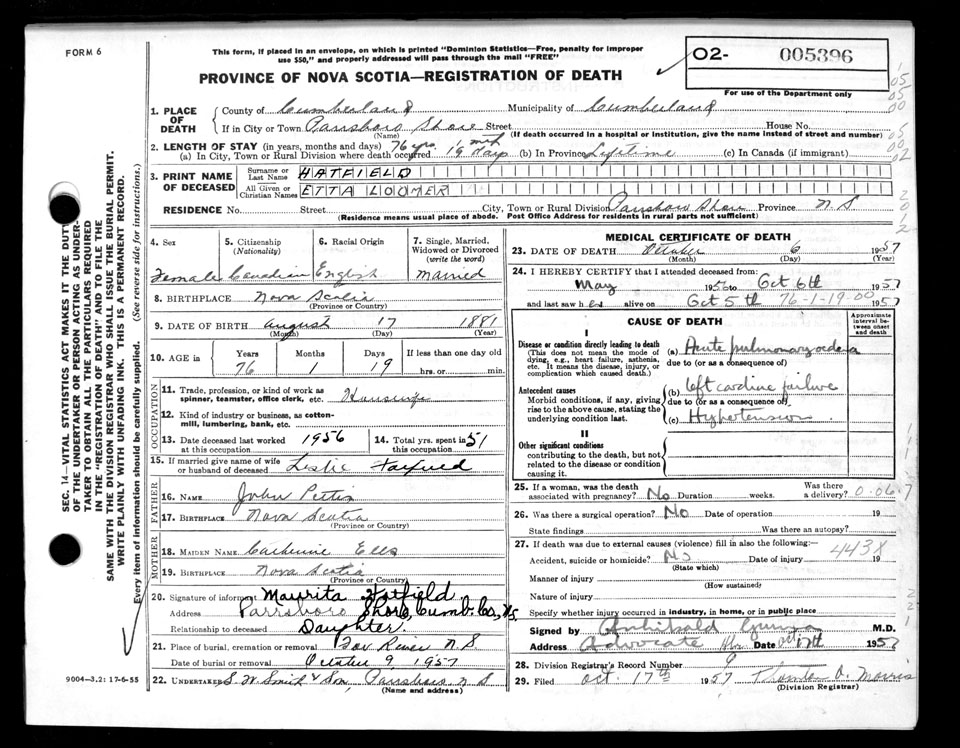 FORM 6
This form, if placed in an envelope, on which is printed "Dominion Statistics—Free, penalty for improper
use $50," and properly addressed will pass through the mail "FREE"
PROVINCE OF NOVA SCOTIA—REGISTRATION OF DEATH
O2- 005396
For use of the Department only
1. PLACE OF DEATH
County of Cumberland Municipality of Cumberland
If in City or Town Parrsboro Shore Street House No.
(Name) (If death occurred in a hospital or institution, give the name instead of street and number)
2. LENGTH OF STAY (in years, months and days) 76 yrs. 1 mth
(a) In City, Town or Rural Division where death occurred 19 days (b) In Province Lifetime (c) In Canada (if immigrant)
3. PRINT NAME OF DECEASED
Surname or Last Name HATFIELD
All Given or Christian Names ETTA LOOMER
RESIDENCE No. Street City, Town or Rural Division Parrsboro Shore Province N S
(Residence means usual place of abode. Post Office Address for residents in rural parts not sufficient)
4. Sex 5. Citizenship (Nationality) 6. Racial Origin 7. Single, Married, Widowed or Divorced (write the word)
Female Canadian English Married
8. BIRTHPLACE Nova Scotia
(Province or Country)
9. DATE OF BIRTH August 17 1881
(Month) (Day) (Year)
10. AGE in Years Months Days If less than one day old
76 1 19 hrs. or min.
OCCUPATION
11. Trade, profession, or kind of work as
spinner, teamster, office clerk, etc. Housewife
12. Kind of industry or business, as cotton-
mill, lumbering, bank, etc.
13. Date deceased last worked at this occupation 1956 14. Total yrs. spent in this occupation 51
15. If married give name of wife or husband of deceased Leslie
FATHER
16. NAME John
17. BIRTHPLACE Nova Scotia
(Province or Country)
MOTHER
18. MAIDEN NAME Catherine Ells
19. BIRTHPLACE Nova Scotia
(Province or Country)
20. Signature of informant Maurita Hatfield
Address Parrsboro Shore, Cumb. Co., N.S.
Relationship to deceased Daughter.
21. Place of burial, cremation or removal Fox River N.S.
Date of burial or removal October 9, 1957
22. UNDERTAKER S. W. Smith & Son, Parrsboro N S
(Name and address)
9004-3.2: 17-6-55
SEC. 14—VITAL STATISTICS ACT MAKES IT THE DUTY
OF THE UNDERTAKER OR PERSON ACTING AS UNDER-
TAKER TO OBTAIN ALL THE PARTICULARS REQUIRED
IN THE "REGISTRATION OF DEATH" AND TO FILE THE
SAME WITH THE DIVISION REGISTRAR WHO SHALL ISSUE THE BURIAL PERMIT.
WRITE PLAINLY WITH UNFADING INK. THIS IS A PERMANENT RECORD.
Every item of information should be carefully supplied. (See reverse side for instructions.)
MEDICAL CERTIFICATE OF DEATH
23. DATE OF DEATH October 6 1957
(Month) (Day) (Year)
24. I HEREBY CERTIFY that I attended deceased from:
May 1956 to Oct 6th 1957
and last saw her alive on Oct 5th 76-1-19-00 1957
CAUSE OF DEATH
Approximate interval between onset and death
I
Disease or condition directly leading to death
(This does not mean the mode of dying, e.g., heart failure, asthenia, etc. It means the disease, injury, or complication which caused death.)
(a) Acute pulmonary oedema
due to (or as a consequence of)
Antecedent causes
Morbid conditions, if any, giving rise to the above cause, stating the underlying condition last.
(b) left cardiac failure
due to (or as a consequence of)
(c) Hypertension
II
Other significant conditions
contributing to the death, but not related to the disease or condition causing it.
25. If a woman, was the death associated with pregnancy? No Duration weeks. Was there a delivery? 0-06-7
26. Was there a surgical operation? No Date of operation 19
State findings Was there an autopsy?
27. If death was due to external causes (violence) fill in also the following:— 443X
Accident, suicide or homicide? No Date of injury 19
(State which)
Manner of injury
(How sustained)
Nature of injury
Specify whether injury occurred in industry, in home, or in public place
Signed by Archibald M.D.
Address Advocate Hbr Date Oct 17th 1957
28. Division Registrar's Record Number 9
29. Filed Oct. 17th 1957
(Division Registrar)